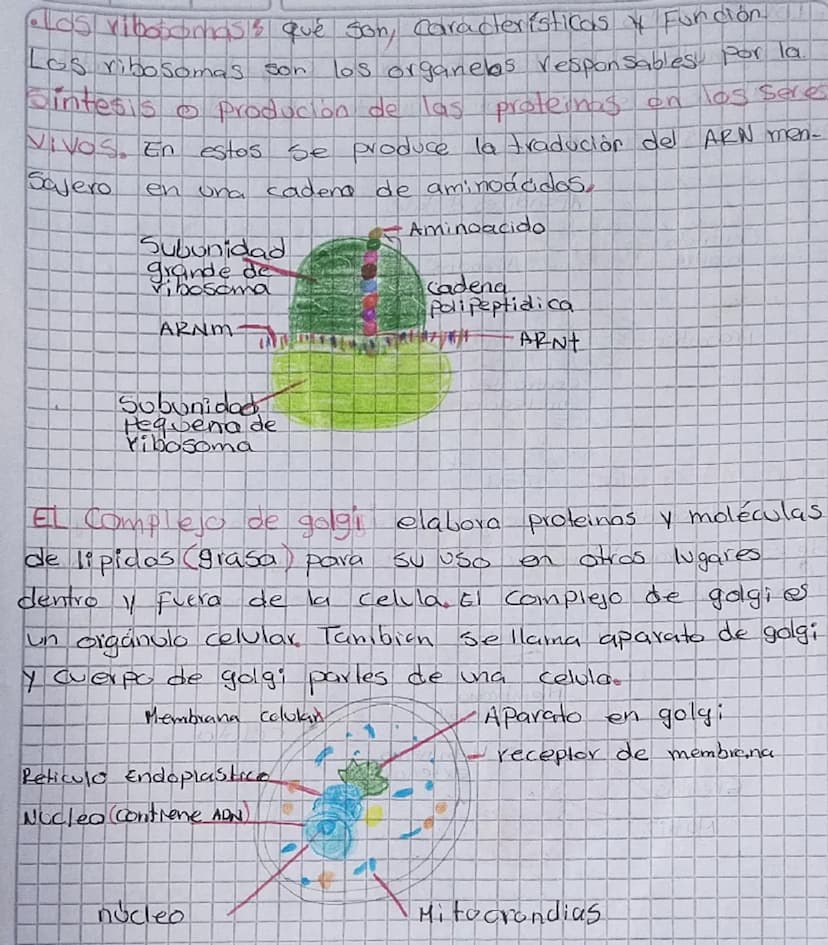 • Los ribosomas: qué son, características y Función.
Los ribosomas son los organelos responsables por la
síntesis o produción de las proteinas en los seres
vivos. En estos se produce la tradución del ARN men-
sajero en una cadena de aminoácidos.
Aminoacido
Subunidad
grande de
ribosoma
cadena
polipeptidica
ARNm
ARNt
Subunidad
Pequeña de
ribosoma
EL Complejo de golgi elabora proteinas y moléculas
de lipidos (grasa) para su uso en otros lugares
dentro y fuera de la celula. El complejo de golgi es
un orgánulo celular. Tanibien se llama aparato de golgi
y cuerpo de golgi partes de una celula.
Membrana celular
Aparato en golgi
receptor de membrana
Reticulo Endoplastico
Nucleo (contiene ADN)
núcleo
Mitocrondias